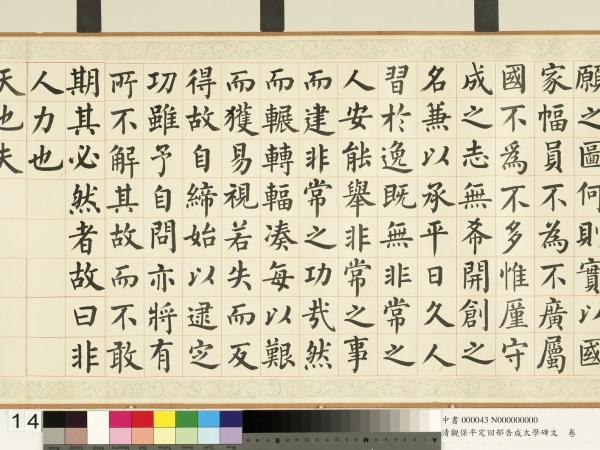 願之圖何則實以國
家幅員不為不廣屬
國不為不多惟厪守
成之志無希開創之
名兼以承平日久人
習於逸既無非常之
人安能舉非常之事
而建非常之功哉然
而輾轉輻湊每以艱
而獲易視若失而反
得故自締始以逮定
功雖予自問亦將有
所不解其故而不敢
期其必然者故曰非
人力也
天也夫
14
中書 000043 N000000000
清觀保平定回部告成太學碑文 卷